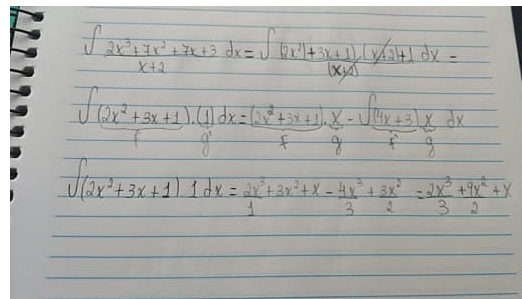 ∫ 2x³+7x²+7x+3 / x+2 dx = ∫ (2x²+3x+1).(x+2)+1 / (x+2) dx =
∫ (2x²+3x+1).(1) dx = (2x²+3x+1).x - ∫(4x+3).x dx
f g' f g f' g
∫(2x²+3x+1).1 dx = 2x³/1 +3x²+x - 4x³/3 + 3x²/2 = 2x³/3 + 9x²/2 + x